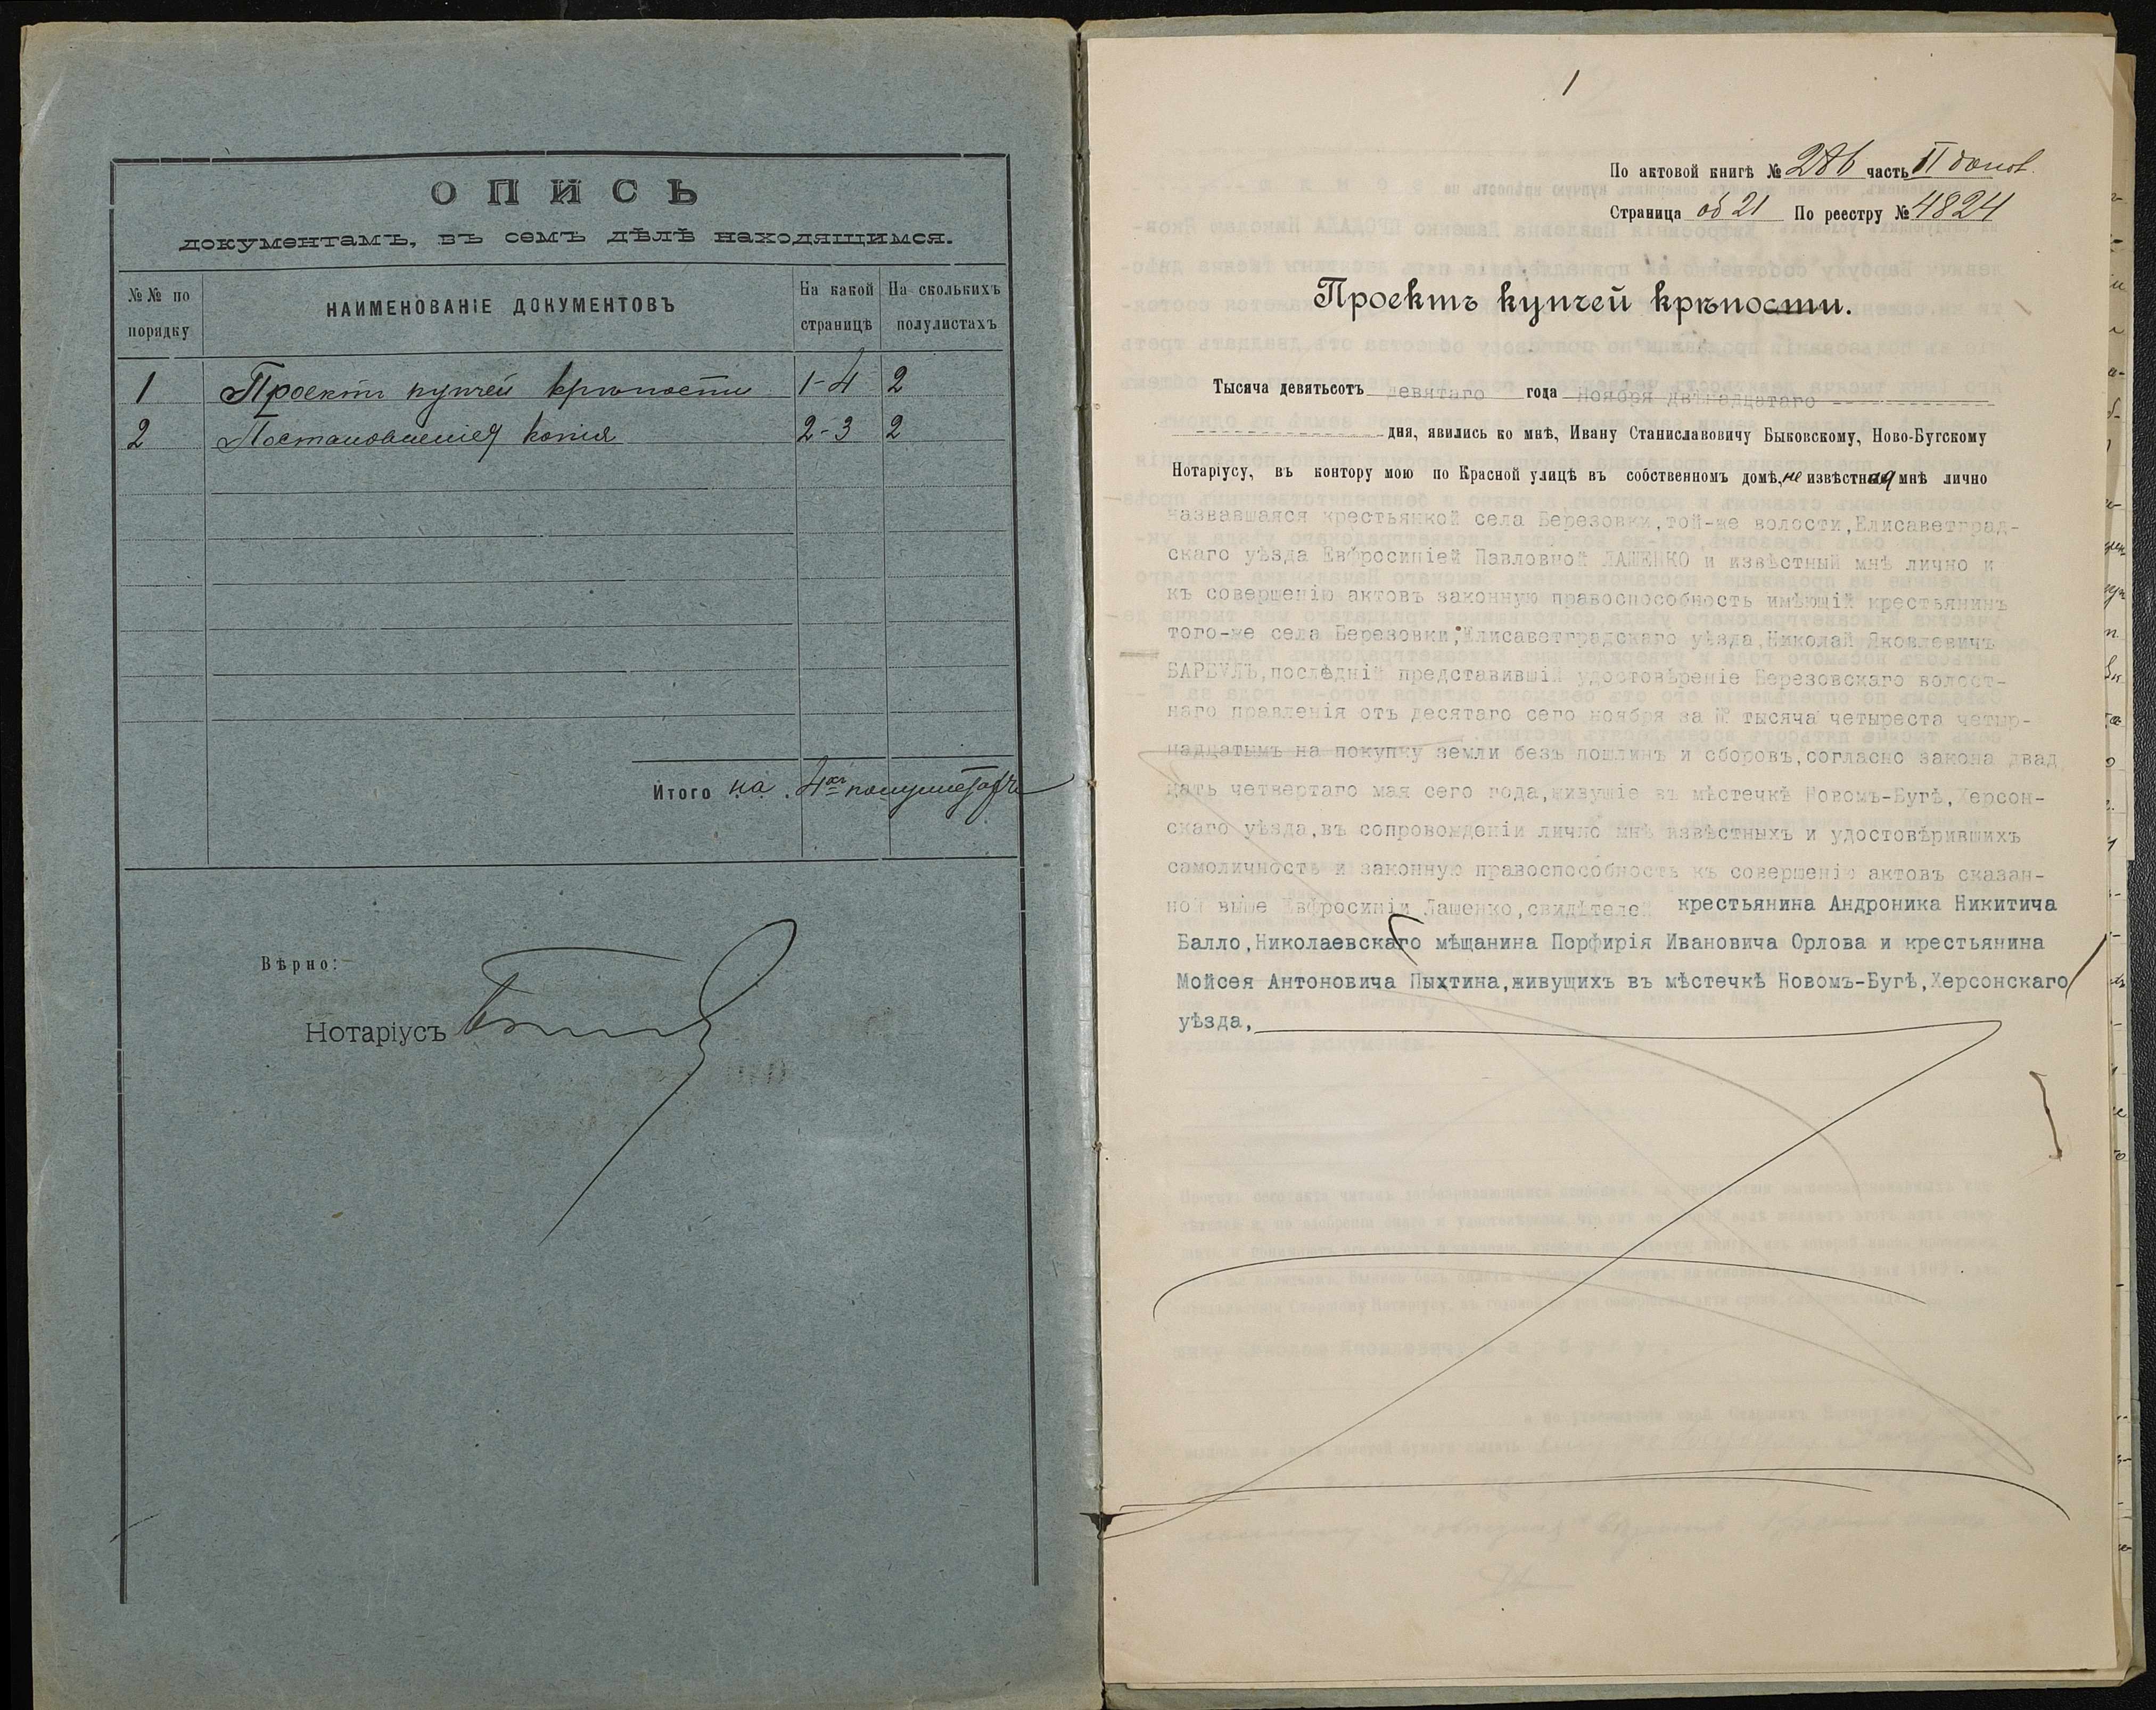 ОПИСЬ
документамъ, въ семъ дѣлѣ находящимся.
№№ по порядку
НАИМЕНОВАНІЕ ДОКУМЕНТОВЪ
На какой страницѣ
На сколькихъ полулистахъ
1 Проектъ купчей крѣпости 1-4 2
2 Постановленія копія 2-3 2
Итого на 4хъ полулистахъ
Вѣрно:
Нотаріусъ
1
По актовой книгѣ № 286 часть II
Страница об 21 По реестру № 4824
Проектъ купчей крѣпости.
Тысяча девятьсотъ девятаго года ноября двѣнадцатаго
дня, явились ко мнѣ, Ивану Станиславовичу Быковскому, Ново-Бугскому
Нотаріусу, въ контору мою по Красной улицѣ въ собственномъ домѣ, не извѣстная мнѣ лично
назвавшаяся крестьянкой села Березовки, той-же волости, Елисаветград-
скаго уѣзда Евфросиніей Павловной ЛАШЕНКО и извѣстный мнѣ лично и
къ совершенію актовъ законную правоспособность имѣющій крестьянинъ
того-же села Березовки, Елисаветградскаго уѣзда, Николай Яковлевичъ
БАРБУЛЪ, послѣдній представившій удостовѣреніе Березовскаго волост-
наго правленія отъ десятаго сего ноября за № тысяча четыреста четыр-
надцатымъ на покупку земли безъ пошлинъ и сборовъ, согласно закона двад
цать четвертаго мая сего года, живущіе въ мѣстечкѣ Новомъ-Бугѣ, Херсон-
скаго уѣзда, въ сопровожденіи лично мнѣ извѣстныхъ и удостовѣрившихъ
самоличность и законную правоспособность къ совершенію актовъ сказан-
ной выше Евфросиніи Лашенко, свидѣтелей крестьянина Андроника Никитича
Балло, Николаевскаго мѣщанина Порфирія Ивановича Орлова и крестьянина
Мойсея Антоновича Пыхтина, живущихъ въ мѣстечкѣ Новомъ-Бугѣ, Херсонскаго
уѣзда,